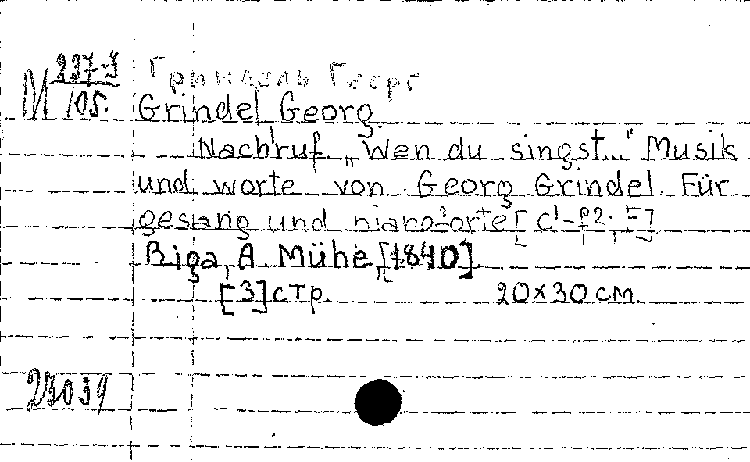 М 237-3
105.
Гриндель Георг
Grindel Georg
Nachruf „Wen du singst..." Musik
und worte von Georg Grindel. Für
gesang und pianoforte
Riga, A Mühe, [1840]
[3] стр. 20×30 см.